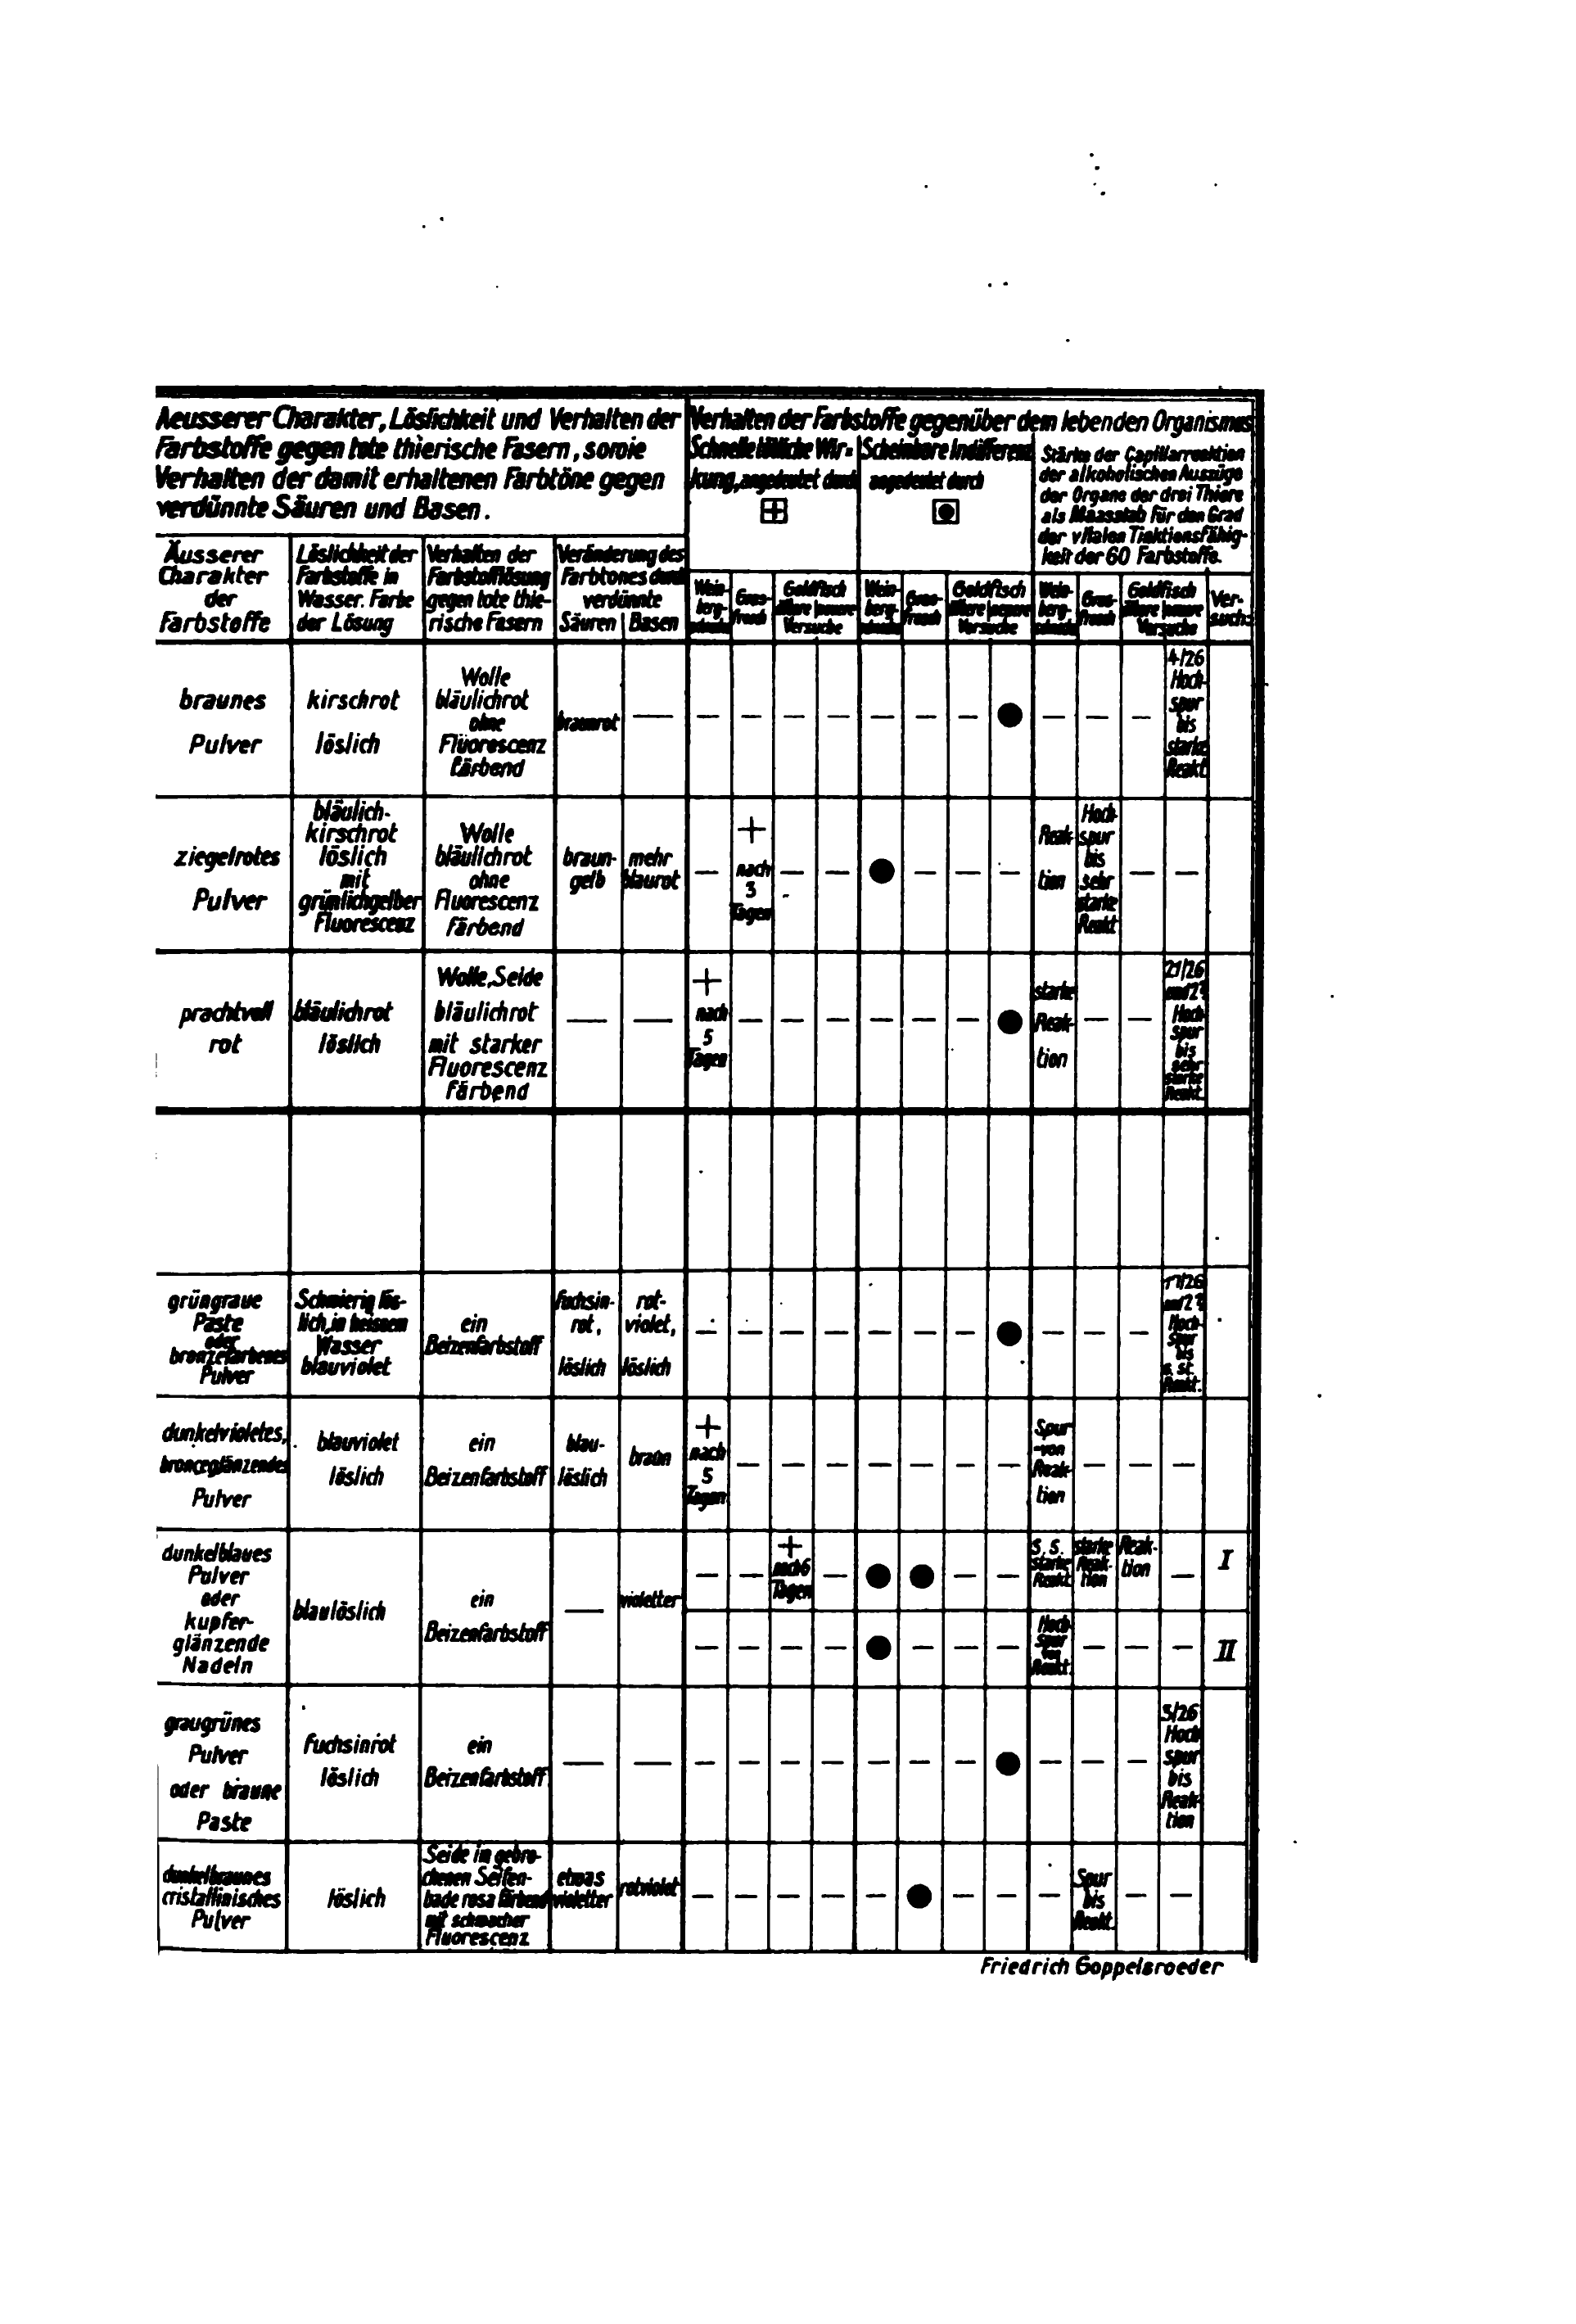 Aeusserer Charakter, Löslichkeit und Verhalten der
Farbstoffe gegen tote thierische Fasern, sowie
Verhalten der damit erhaltenen Farbtöne gegen
verdünnte Säuren und Basen.
Verhalten der Farbstoffe gegenüber dem lebenden Organismus
Schnelle tötliche Wir=
kung, angedeutet durch
+
Scheinbare Indifferenz
angedeutet durch
●
Stärke der Capillarreaktion
der alkoholischen Auszüge
der Organe der drei Thiere
als Maasstab für den Grad
der vitalen Tinktionsfähig-
keit der 60 Farbstoffe.
Äusserer
Charakter
der
Farbstoffe
Löslichkeit der
Farbstoffe in
Wasser. Farbe
der Lösung
Verhalten der
Farbstofflösung
gegen tote thie-
rische Fasern
Veränderung des
Farbtones durch
verdünnte
Säuren Basen
Wein-
berg-
schnecke
Gras-
frosch
Goldfisch
ältere neuere
Versuche
Wein-
berg-
schnecke
Gras-
frosch
Goldfisch
ältere neuere
Versuche
Wein-
berg-
schnecke
Gras-
frosch
Goldfisch
ältere neuere
Versuche
Ver-
such:
braunes
Pulver
kirschrot
löslich
Wolle
bläulichrot
ohne
Flüorescenz
färbend
braunrot
— — — — — — — — ● — — —
4/26
Hoch-
spur
bis
starke
Reakt.
ziegelrotes
Pulver
bläulich-
kirschrot
löslich
mit
grünlichgelber
Fluorescenz
Wolle
bläulichrot
ohne
Fluorescenz
färbend
braun-
gelb
mehr
blaurot
—
+
nach
3
Tagen
— — ● — — —
Reak-
tion
Hoch-
spur
bis
sehr
starke
Reakt
— —
prachtvoll
rot
bläulichrot
löslich
Wolle, Seide
bläulichrot
mit starker
Fluorescenz
färbend
— —
+
nach
5
Tagen
— — — — — — ●
starke
Reak-
tion
— —
21/26
und 2?
Hoch
spur
bis
sehr
starke
Reakt.
grüngraue
Paste
oder
bronzefarbenes
Pulver
Schmierig lös-
lich, in heissem
Wasser
blauviolet
ein
Beizenfarbstoff
fuchsin-
rot,
löslich
rot-
violet,
löslich
— — — — — — — ● — — —
17/26
und 2?
Hoch-
spur
bis
s. st.
Reakt.
dunkelvioletes,
bronceglänzendes
Pulver
blauviolet
löslich
ein
Beizenfarbstoff
blau-
löslich
braun
+
nach
5
Tagen
— — — — — — —
Spur
-von
Reak-
tion
— — —
dunkelblaues
Pulver
oder
kupfer-
glänzende
Nadeln
blaulöslich
ein
Beizenfarbstoff
—
violetter
— —
+
nach 6
Tagen
— ● ● — —
S. S.
starke
Reakt.
starke
Reak-
tion
Reak-
tion
—
I
— — — — ● — — —
Hoch-
spur
von
Reakt.
— — —
II
graugrünes
Pulver
oder braune
Paste
fuchsinrot
löslich
ein
Beizenfarbstoff
— — — — — — — — — ● — — —
3/26
Hoch
spur
bis
Reak-
tion
dunkelbraunes
cristallinisches
Pulver
löslich
Seide im gebro-
chenen Seifen-
bade rosa färbend
mit schwacher
Fluorescenz
etwas
violetter
rotviolet
— — — — — ● — — —
Spur
bis
Reakt.
— —
Friedrich Goppelsroeder